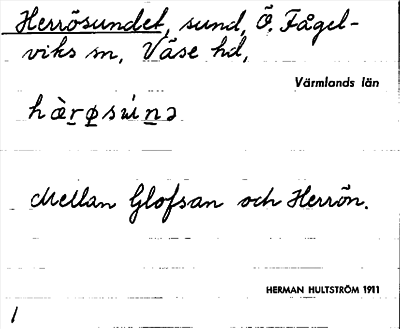 Herrösundet, sund, Ö. Fågel-
viks sn, Väse hd,
Värmlands län
hàrøsúnə
Mellan Glofsan och Herrön.
HERMAN HULTSTRÖM 1911
1